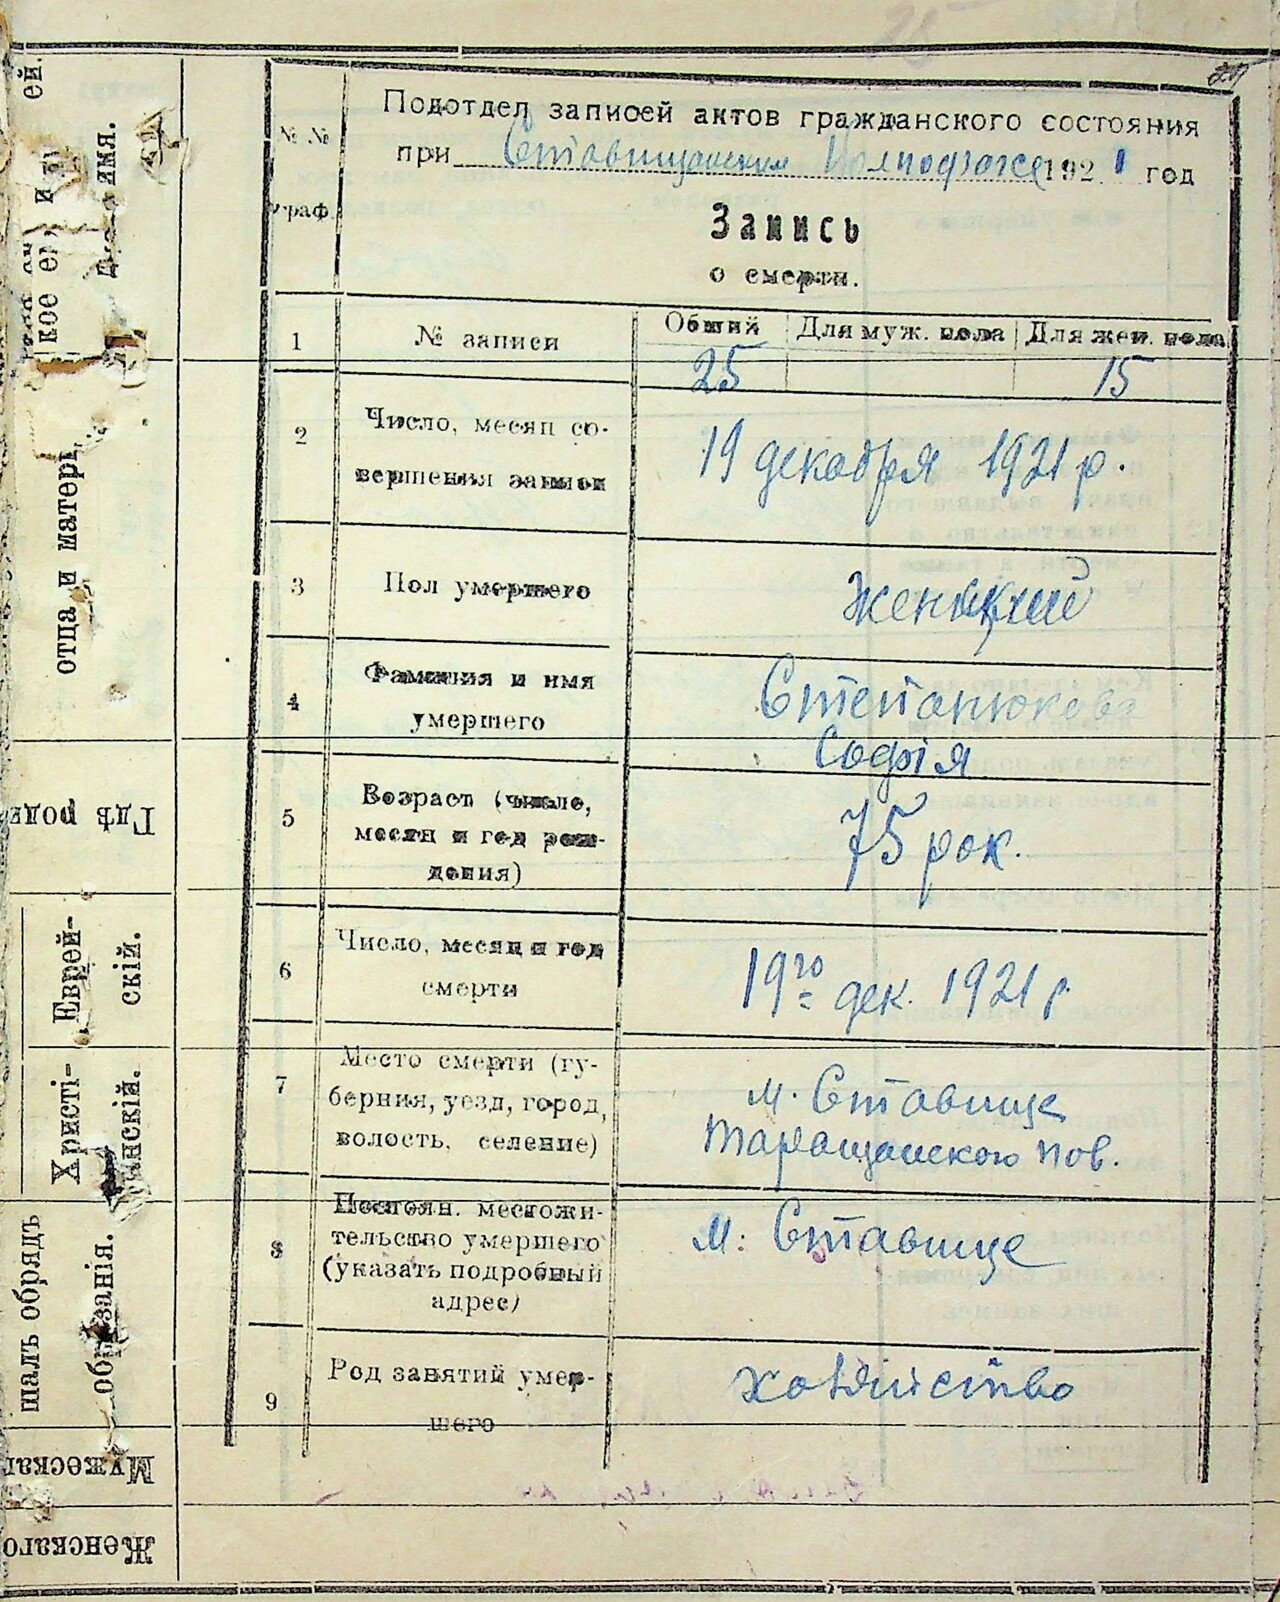 Подотдел записей актов гражданского состояния
при Ставищанским 1921 год
№ № граф.
Запись
о смерти.
1 № записи Общий Для муж. пола Для жен. пола
25 15
2 Число, месяц со-
вершения записи
19 декабря 1921 р.
3 Пол умершего
женский
4 Фамилия и имя
умершего
Степанюкова
Софія
5 Возраст (число,
месяц и год рож-
дения)
75 рок.
6 Число, месяц и год
смерти
19го дек. 1921 г.
7 Место смерти (гу-
берния, уезд, город,
волость, селение)
м. Ставище
Таращанского пов.
8 Постоян. местожи-
тельство умершего
(указать подробный
адрес)
м. Ставище
9 Род занятий умер-
шего
хозяйство
отца и матери
имя.
Гдѣ
Еврей-
скій.
Христі-
анскій.
шалъ обрядъ
обрѣзанія.
Мужескаго
Женскаго
25